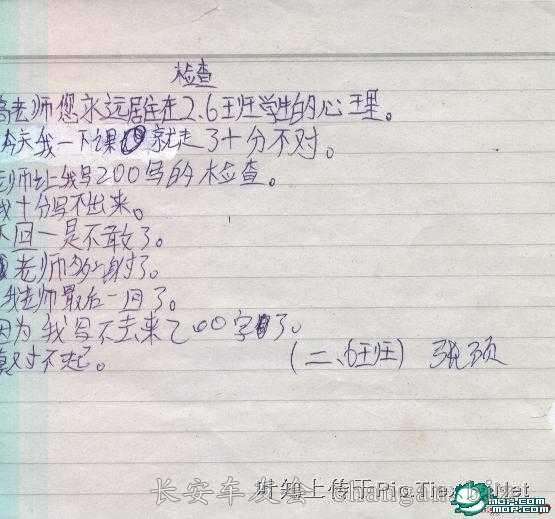 检查
高老师您永远居住在2.6班学生的心理。
今天我一下课就走了十分不对。
老师让我写200写的检查。
我十分写不出来。
下回一是不敢了。
老师多谢了。
我老师最后一回了。
因为我写不去来200字了。
真对不起。
(二、6班) 张
长安车友会 changan
时知上传于Pig.Tie Net
PCPOP.COM
MOP.COM